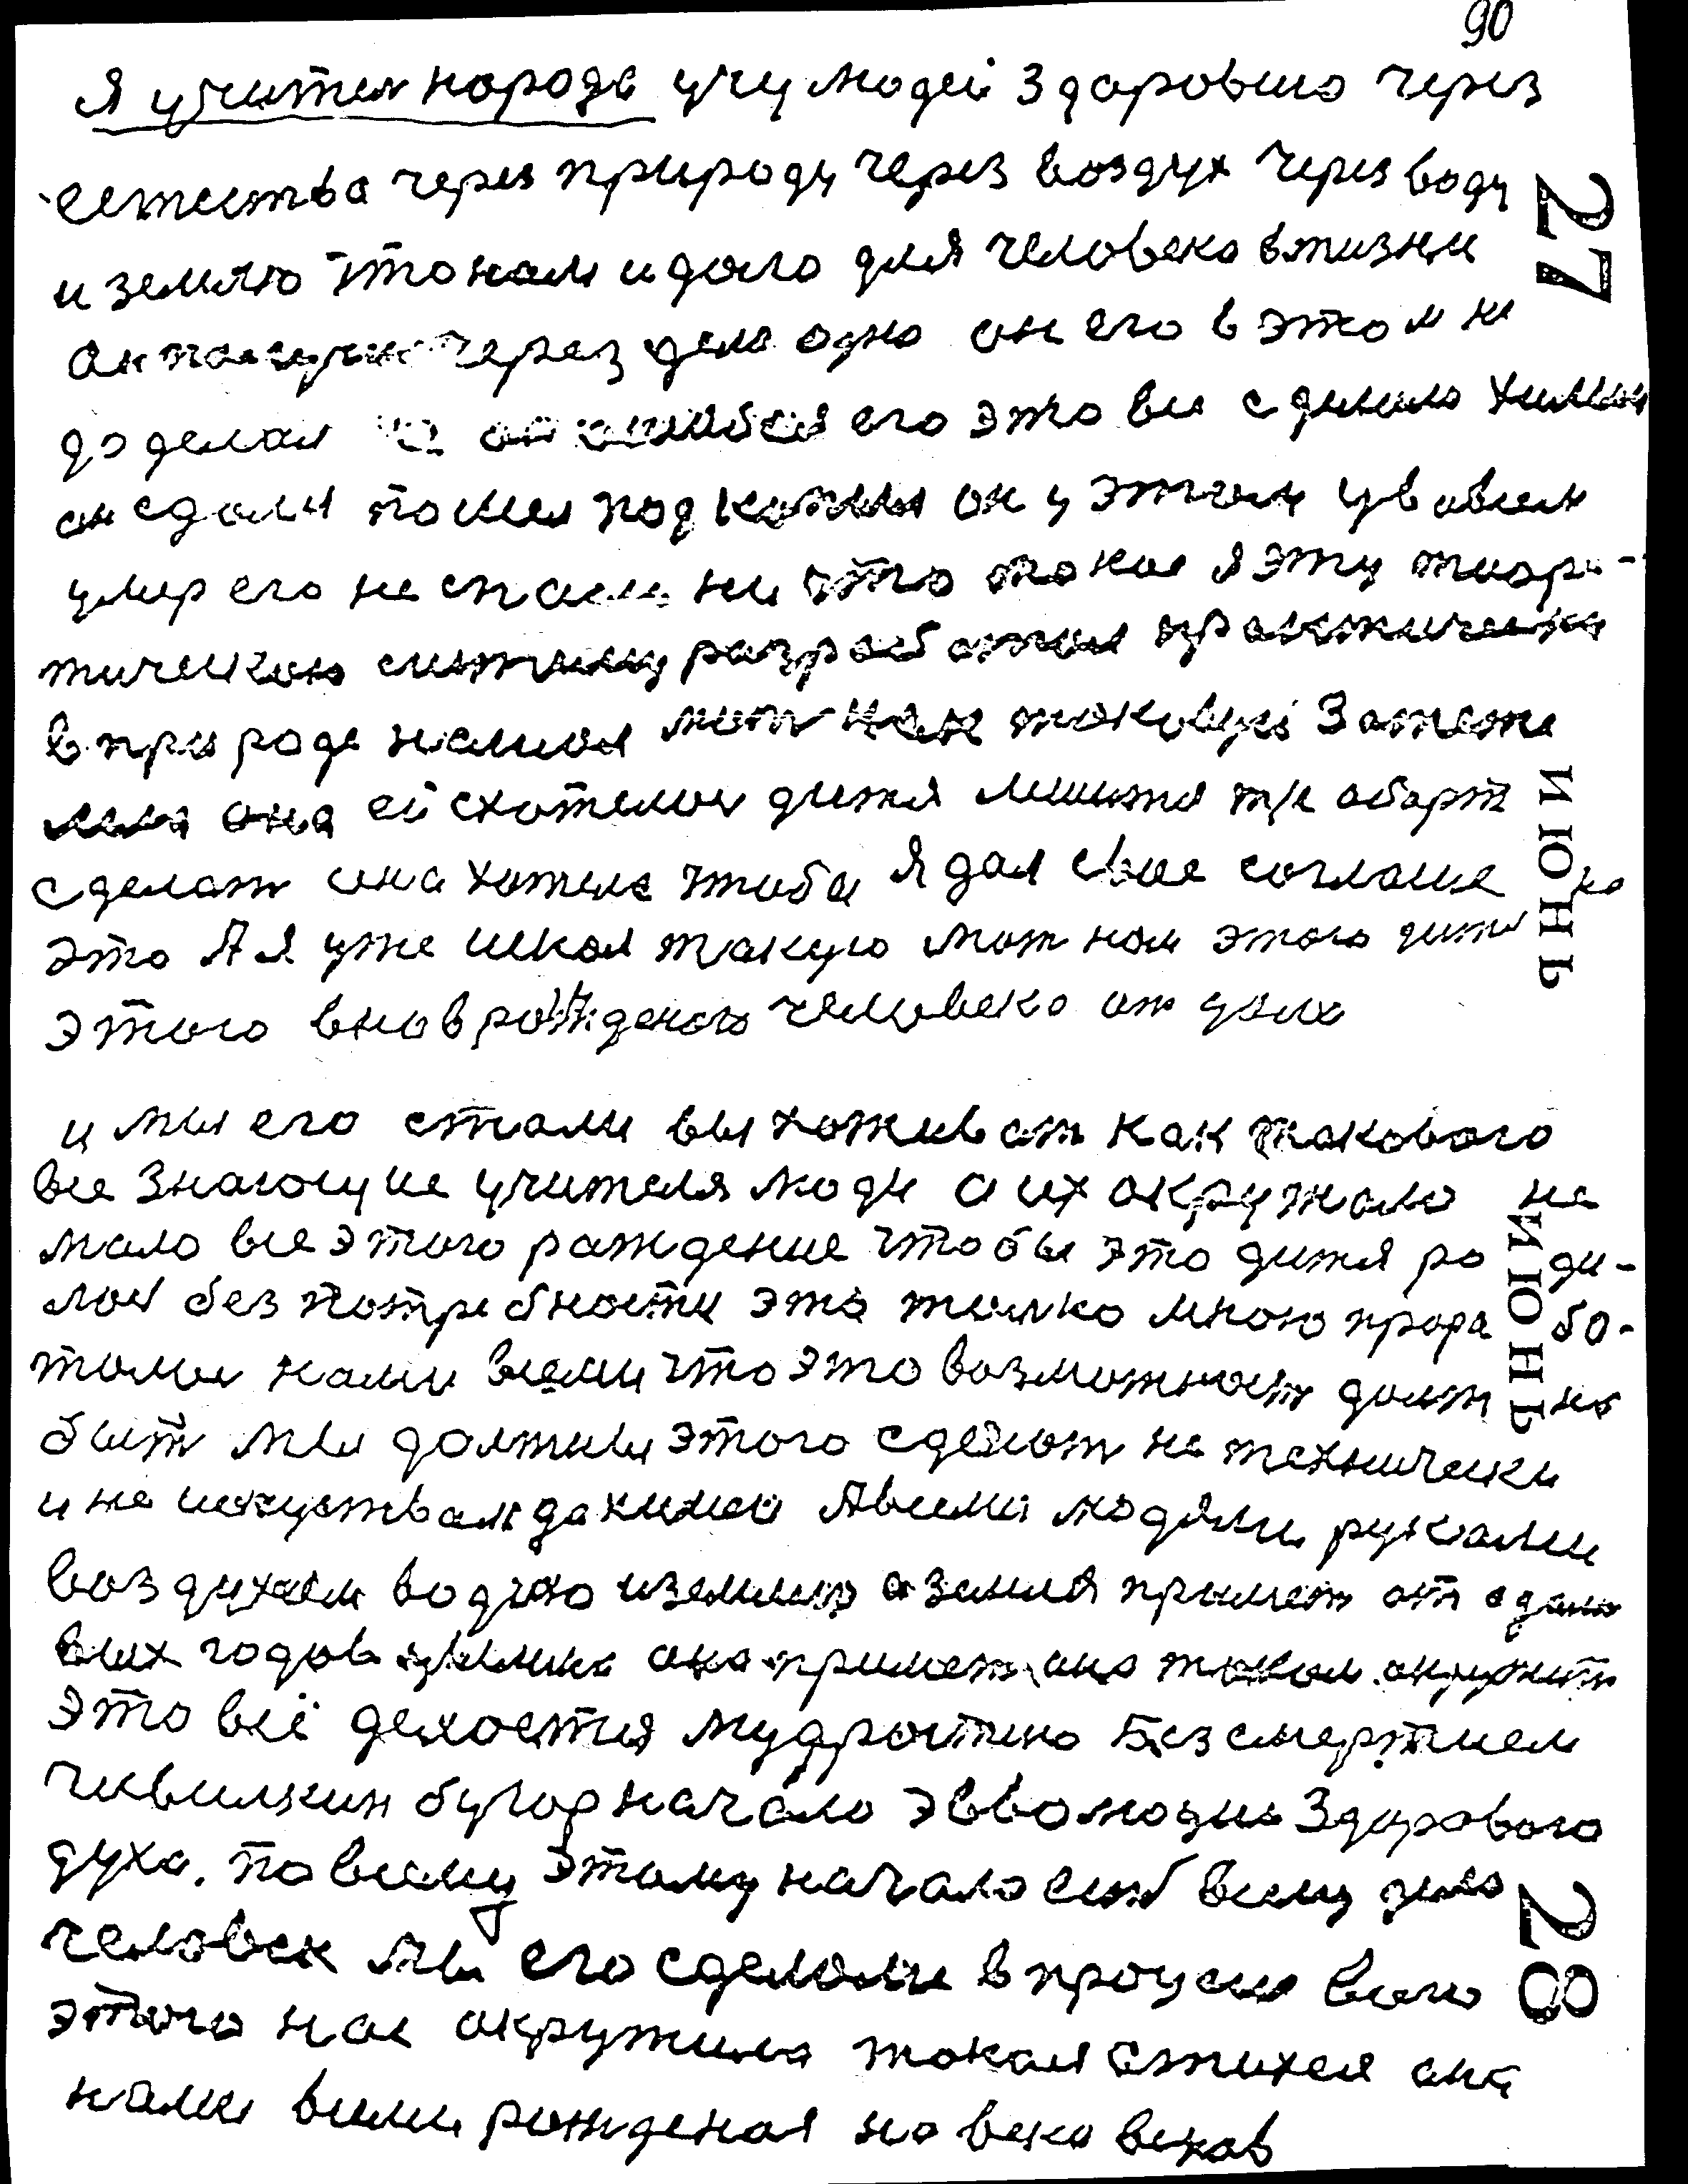 90
Я учител народа учу людей здаровию через
естества через природу через воздух через воду
27
и землю это нам идаго для человека вжизни
он через дела одно он его в этом не
доделал его это все сделало
он сдалы пошел под он у этом
умер его не спасли ни это токое я эту тиари-
тическою систиму разработал практически
в природе
она ей схотелос дитя лишится т/к аборт
ИЮНЬ
сделат она хотела чтобы я дал свое согласие на
это А я уже искал такую мат как этого дитя
этого внов рожденого человека от удих
и мы его стали выхоживат как такового
все знающие учителя люди а их окружало не
мало все этого раждение чтобы это дитя роди-
лос без потребности это толко мною прорабо-
ИЮНЬ
талос нами всеми что это возможност должна
быт мы должны этого сделат не технически
и не искуством да химией А всеми людями руками
воздухам водою и землею а земля примет от
всих годов она примет она
это всё делается мудростию безсмертием
чивилкин бугор начало эвволюция здарового
духа. по всему этому начало ест всему дило
28
человек мы его сделали в процеси всего
этого нас окружила токая стихея она
нами всими рожденая на века веков